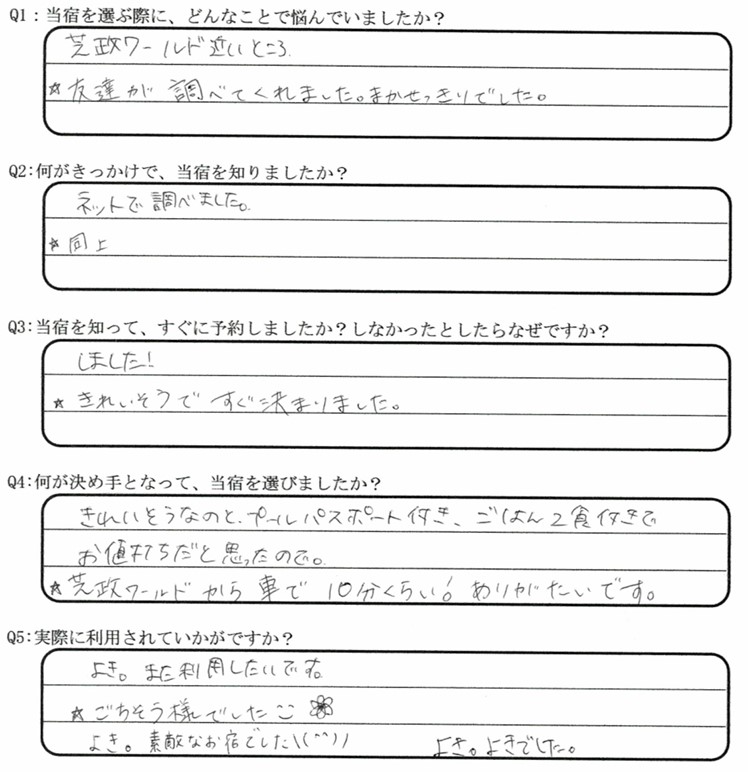 Q1：当宿を選ぶ際に、どんなことで悩んでいましたか？
芝政ワールド近いところ.
☆友達が調べてくれました。まかせっきりでした。
Q2:何がきっかけで、当宿を知りましたか？
ネットで調べました。
☆同上
Q3:当宿を知って、すぐに予約しましたか？しなかったとしたらなぜですか？
しました！
☆きれいそうですぐ決まりました。
Q4:何が決め手となって、当宿を選びましたか？
きれいそうなのと、プールパスポート付き、ごはん2食付きで
お値打ちだと思ったので。
☆芝政ワールドから車で10分くらい！ありがたいです。
Q5:実際に利用されていかがですか？
よき。また利用したいです。
☆ごちそう様でした
よき。素敵なお宿でした\(^^)/ よき。よきでした。